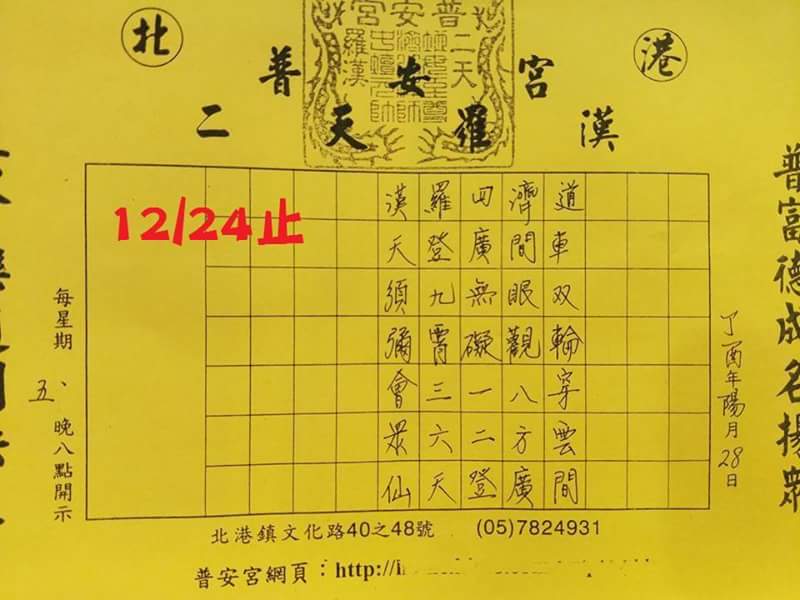 北 港
普安宮
普安宮
二天羅漢
普富德成名揚眾
丁酉年陽月28日
道車双輪穿雲間
濟間眼觀八方廣
四廣無礙一二登
羅登九霄三六天
漢天須彌會眾仙
12/24止
每星期五、晚八點開示
北港鎮文化路40之48號 (05)7824931
普安宮網頁：